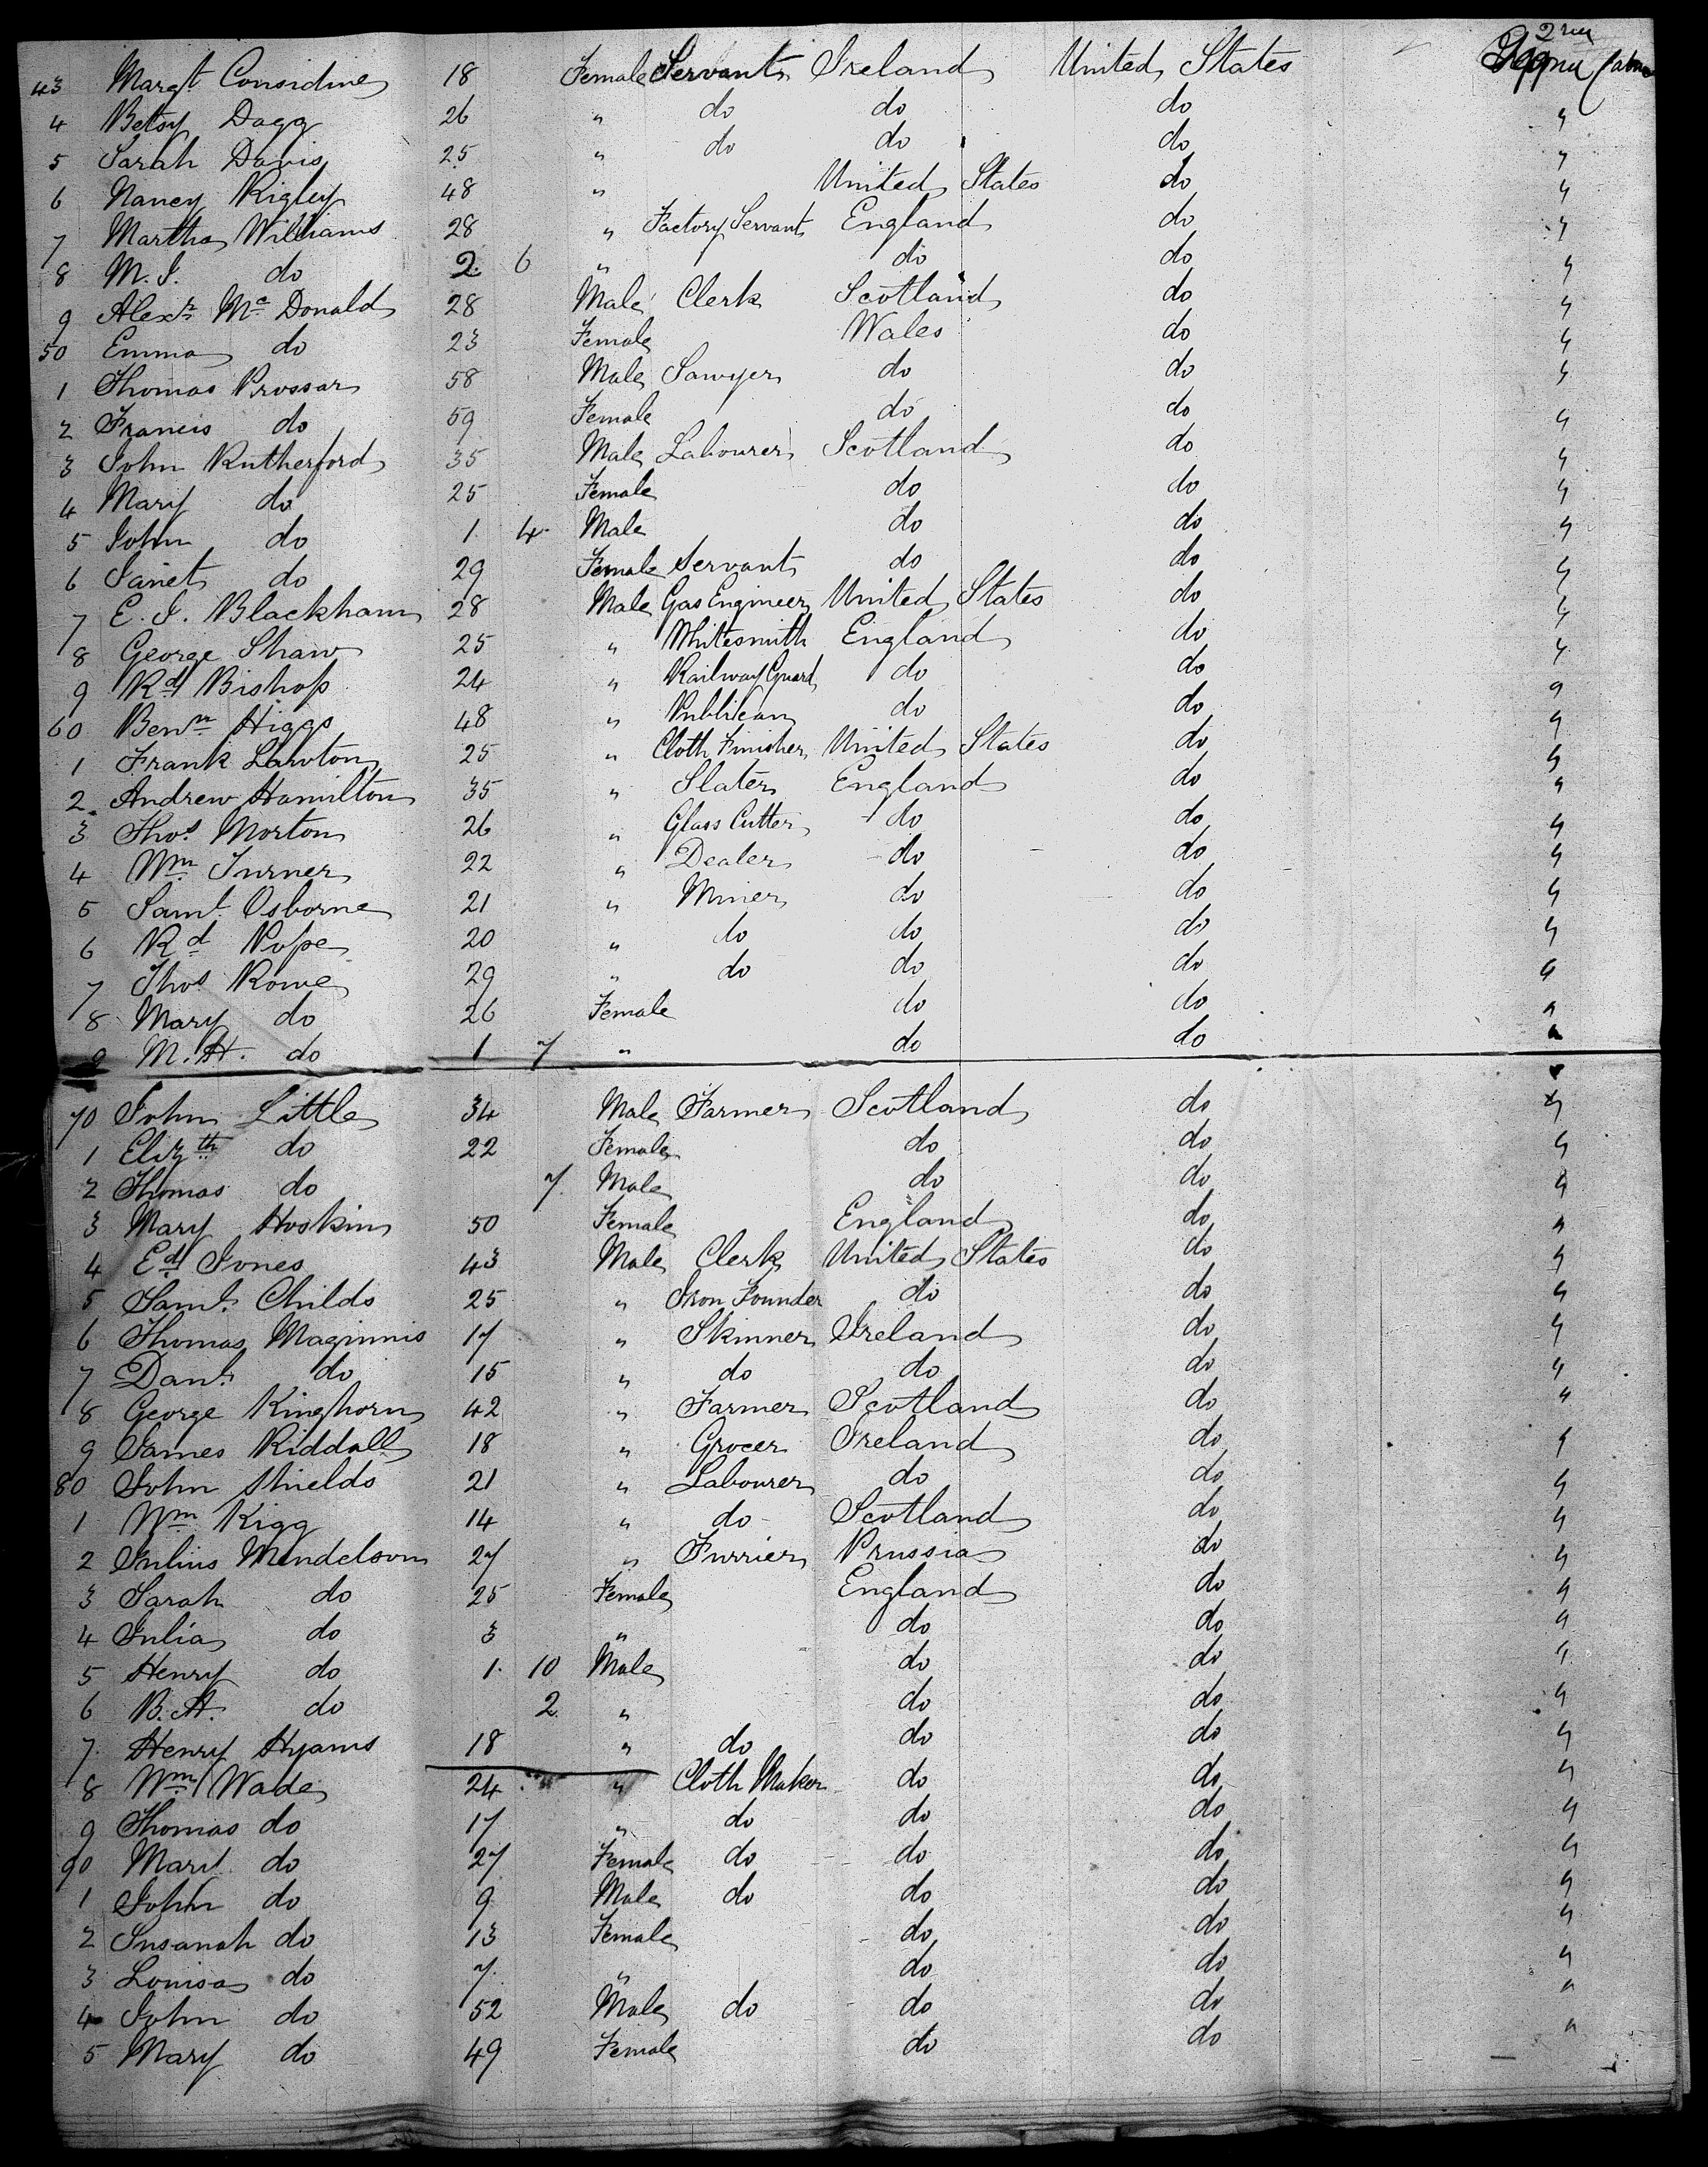 2
43 Margt Considine 18 Female Servant Ireland United States
4 Betsy Dagg 26 " do do do "
5 Sarah Davis 25 " do do do "
6 Nancy Rigley 48 " United States do "
7 Martha Williams 28 " Factory Servant England do "
8 M. J. do 2 6 " do do "
9 Alexr Mc Donald 28 Male Clerk Scotland do "
50 Emma do 23 Female Wales do "
1 Thomas Prossar 58 Male Sawyer do do "
2 Francis do 59 Female do do "
3 John Rutherford 35 Male Labourer Scotland do "
4 Mary do 25 Female do do "
5 John do 1 4 Male do do "
6 Janet do 29 Female Servant do do "
7 E. J. Blackham 28 Male Gas Engineer United States do "
8 George Shaw 25 " Whitesmith England do "
9 Rd Bishop 24 " Railway Guard do do "
60 Benn Higgs 48 " Publican do do "
1 Frank Lawton 25 " Cloth Finisher United States do "
2 Andrew Hamilton 35 " Slater England do "
3 Thos Morton 26 " Glass Cutter do do "
4 Wm Turner 22 " Dealer do do "
5 Saml Osborne 21 " Miner do do "
6 Rd Pope 20 " do do do "
7 Thos Rowe 29 " do do do "
8 Mary do 26 Female do do "
9 M. H. do 1 7 " do do "
70 John Little 34 Male Farmer Scotland do "
1 Elizth do 22 Female do do "
2 Thomas do 7 Male do do "
3 Mary Hoskin 50 Female England do "
4 Ed Jones 43 Male Clerk United States do "
5 Saml Childs 25 " Iron Founder do do "
6 Thomas Maginnis 17 " Skinner Ireland do "
7 Danl do 15 " do do do "
8 George Kinghorn 42 " Farmer Scotland do "
9 James Riddall 18 " Grocer Ireland do "
80 John Shields 21 " Labourer do do "
1 Wm Kigg 14 " do Scotland do "
2 Julius Mendelson 27 " Furrier Prussia do "
3 Sarah do 25 Female England do "
4 Julia do 3 " do do "
5 Henry do 1 10 Male do do "
6 B. A. do 2 " do do "
7 Henry Hyams 18 " do do do "
8 Wm Wade 24 " " Cloth Maker do do "
9 Thomas do 17 " do do do "
90 Mary do 27 Female do do do "
1 John do 9 Male do do do "
2 Susanah do 13 Female do do "
3 Louisa do 7 " do do "
4 John do 52 Male do do do "
5 Mary do 49 Female do do "